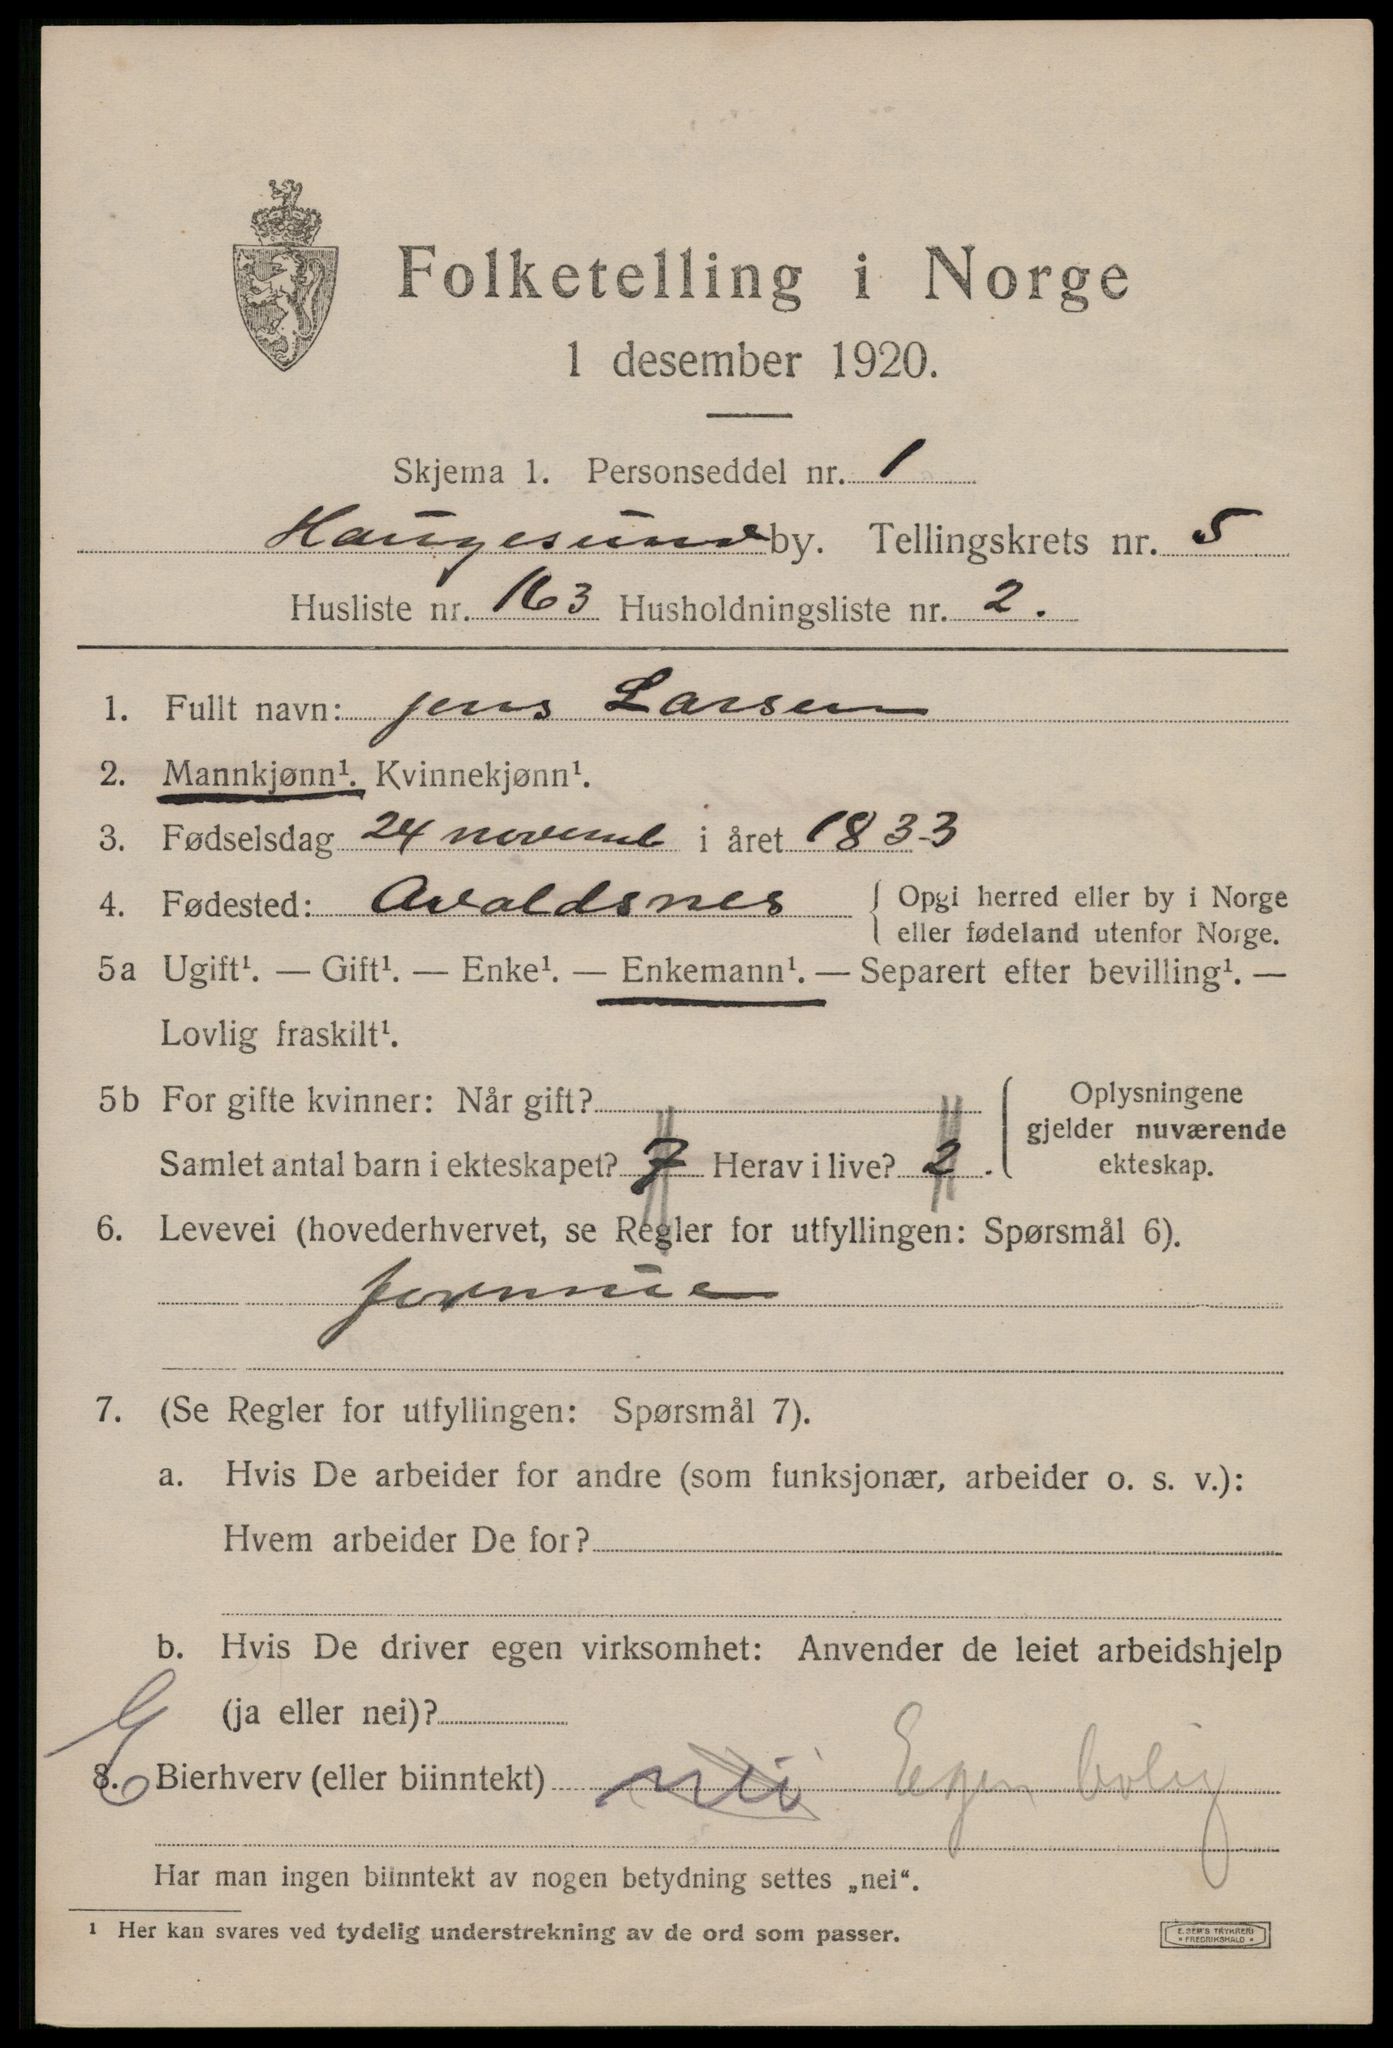 Folketelling i Norge
1 desember 1920.
Skjema 1. Personseddel nr. 1
Haugesund by. Tellingskrets nr. 5
Husliste nr. 163 Husholdningsliste nr. 2.
1. Fullt navn: Jens Larsen
2. Mannkjønn¹. Kvinnekjønn¹.
3. Fødselsdag 24 novemb i året 1833
4. Fødested: Avaldsnes { Opgi herred eller by i Norge
eller fødeland utenfor Norge.
5a Ugift¹. — Gift¹. — Enke¹. — Enkemann¹. — Separert efter bevilling¹. —
Lovlig fraskilt¹.
5b For gifte kvinner: Når gift?
Samlet antal barn i ekteskapet? 7 Herav i live? 2.
{ Oplysningene
gjelder nuværende
ekteskap.
6. Levevei (hovederhvervet, se Regler for utfyllingen: Spørsmål 6).
7. (Se Regler for utfyllingen: Spørsmål 7).
a. Hvis De arbeider for andre (som funksjonær, arbeider o. s. v.):
Hvem arbeider De for?
b. Hvis De driver egen virksomhet: Anvender de leiet arbeidshjelp
(ja eller nei)?
8. Bierhverv (eller biinntekt) nei Egen bolig
Har man ingen biinntekt av nogen betydning settes „nei".
¹ Her kan svares ved tydelig understrekning av de ord som passer.
E. SEM'S TRYKKERI
* FREDRIKSHALD *